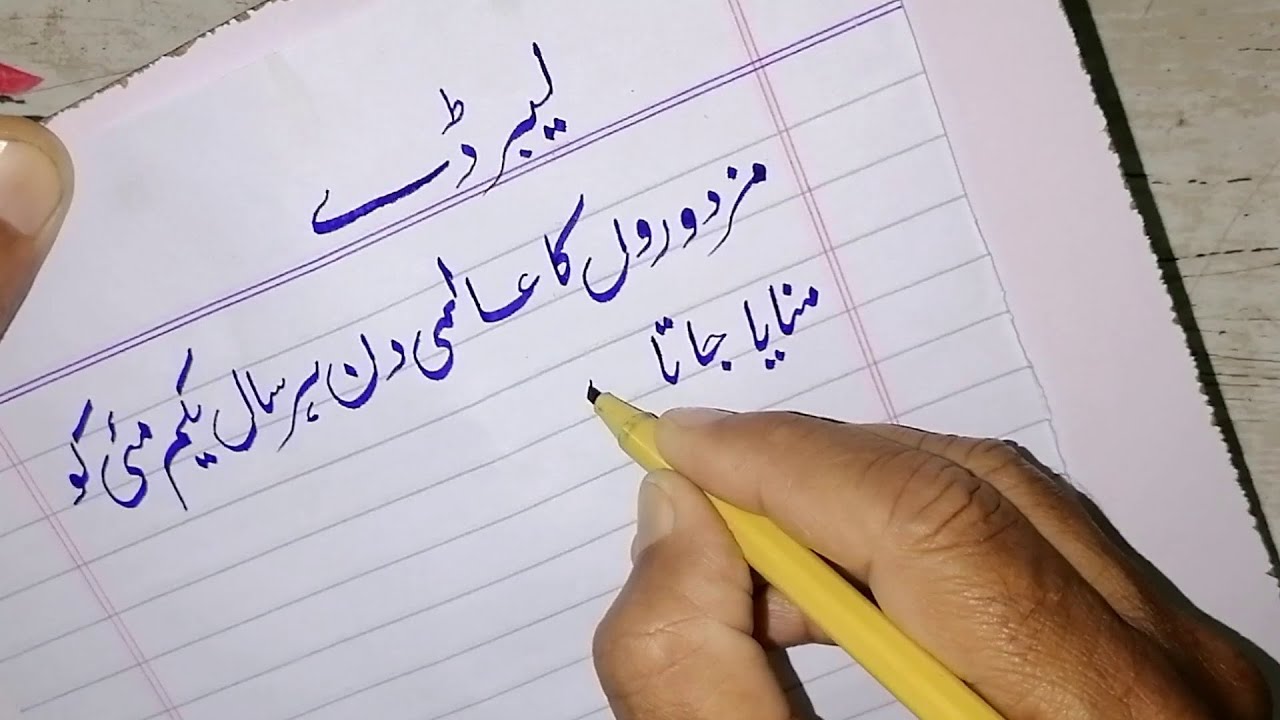 لیبر ڈے
مزدوروں کا عالمی دن ہر سال یکم مئی کو
منایا جاتا